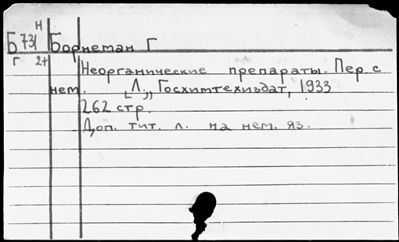 Н
Б731 Борнеман Г
Г 2+
Неорганические препараты. Пер. с
нем. Л., Госхимтехиздат, 1933
262 стр.
Доп. тит. л. на нем. яз.